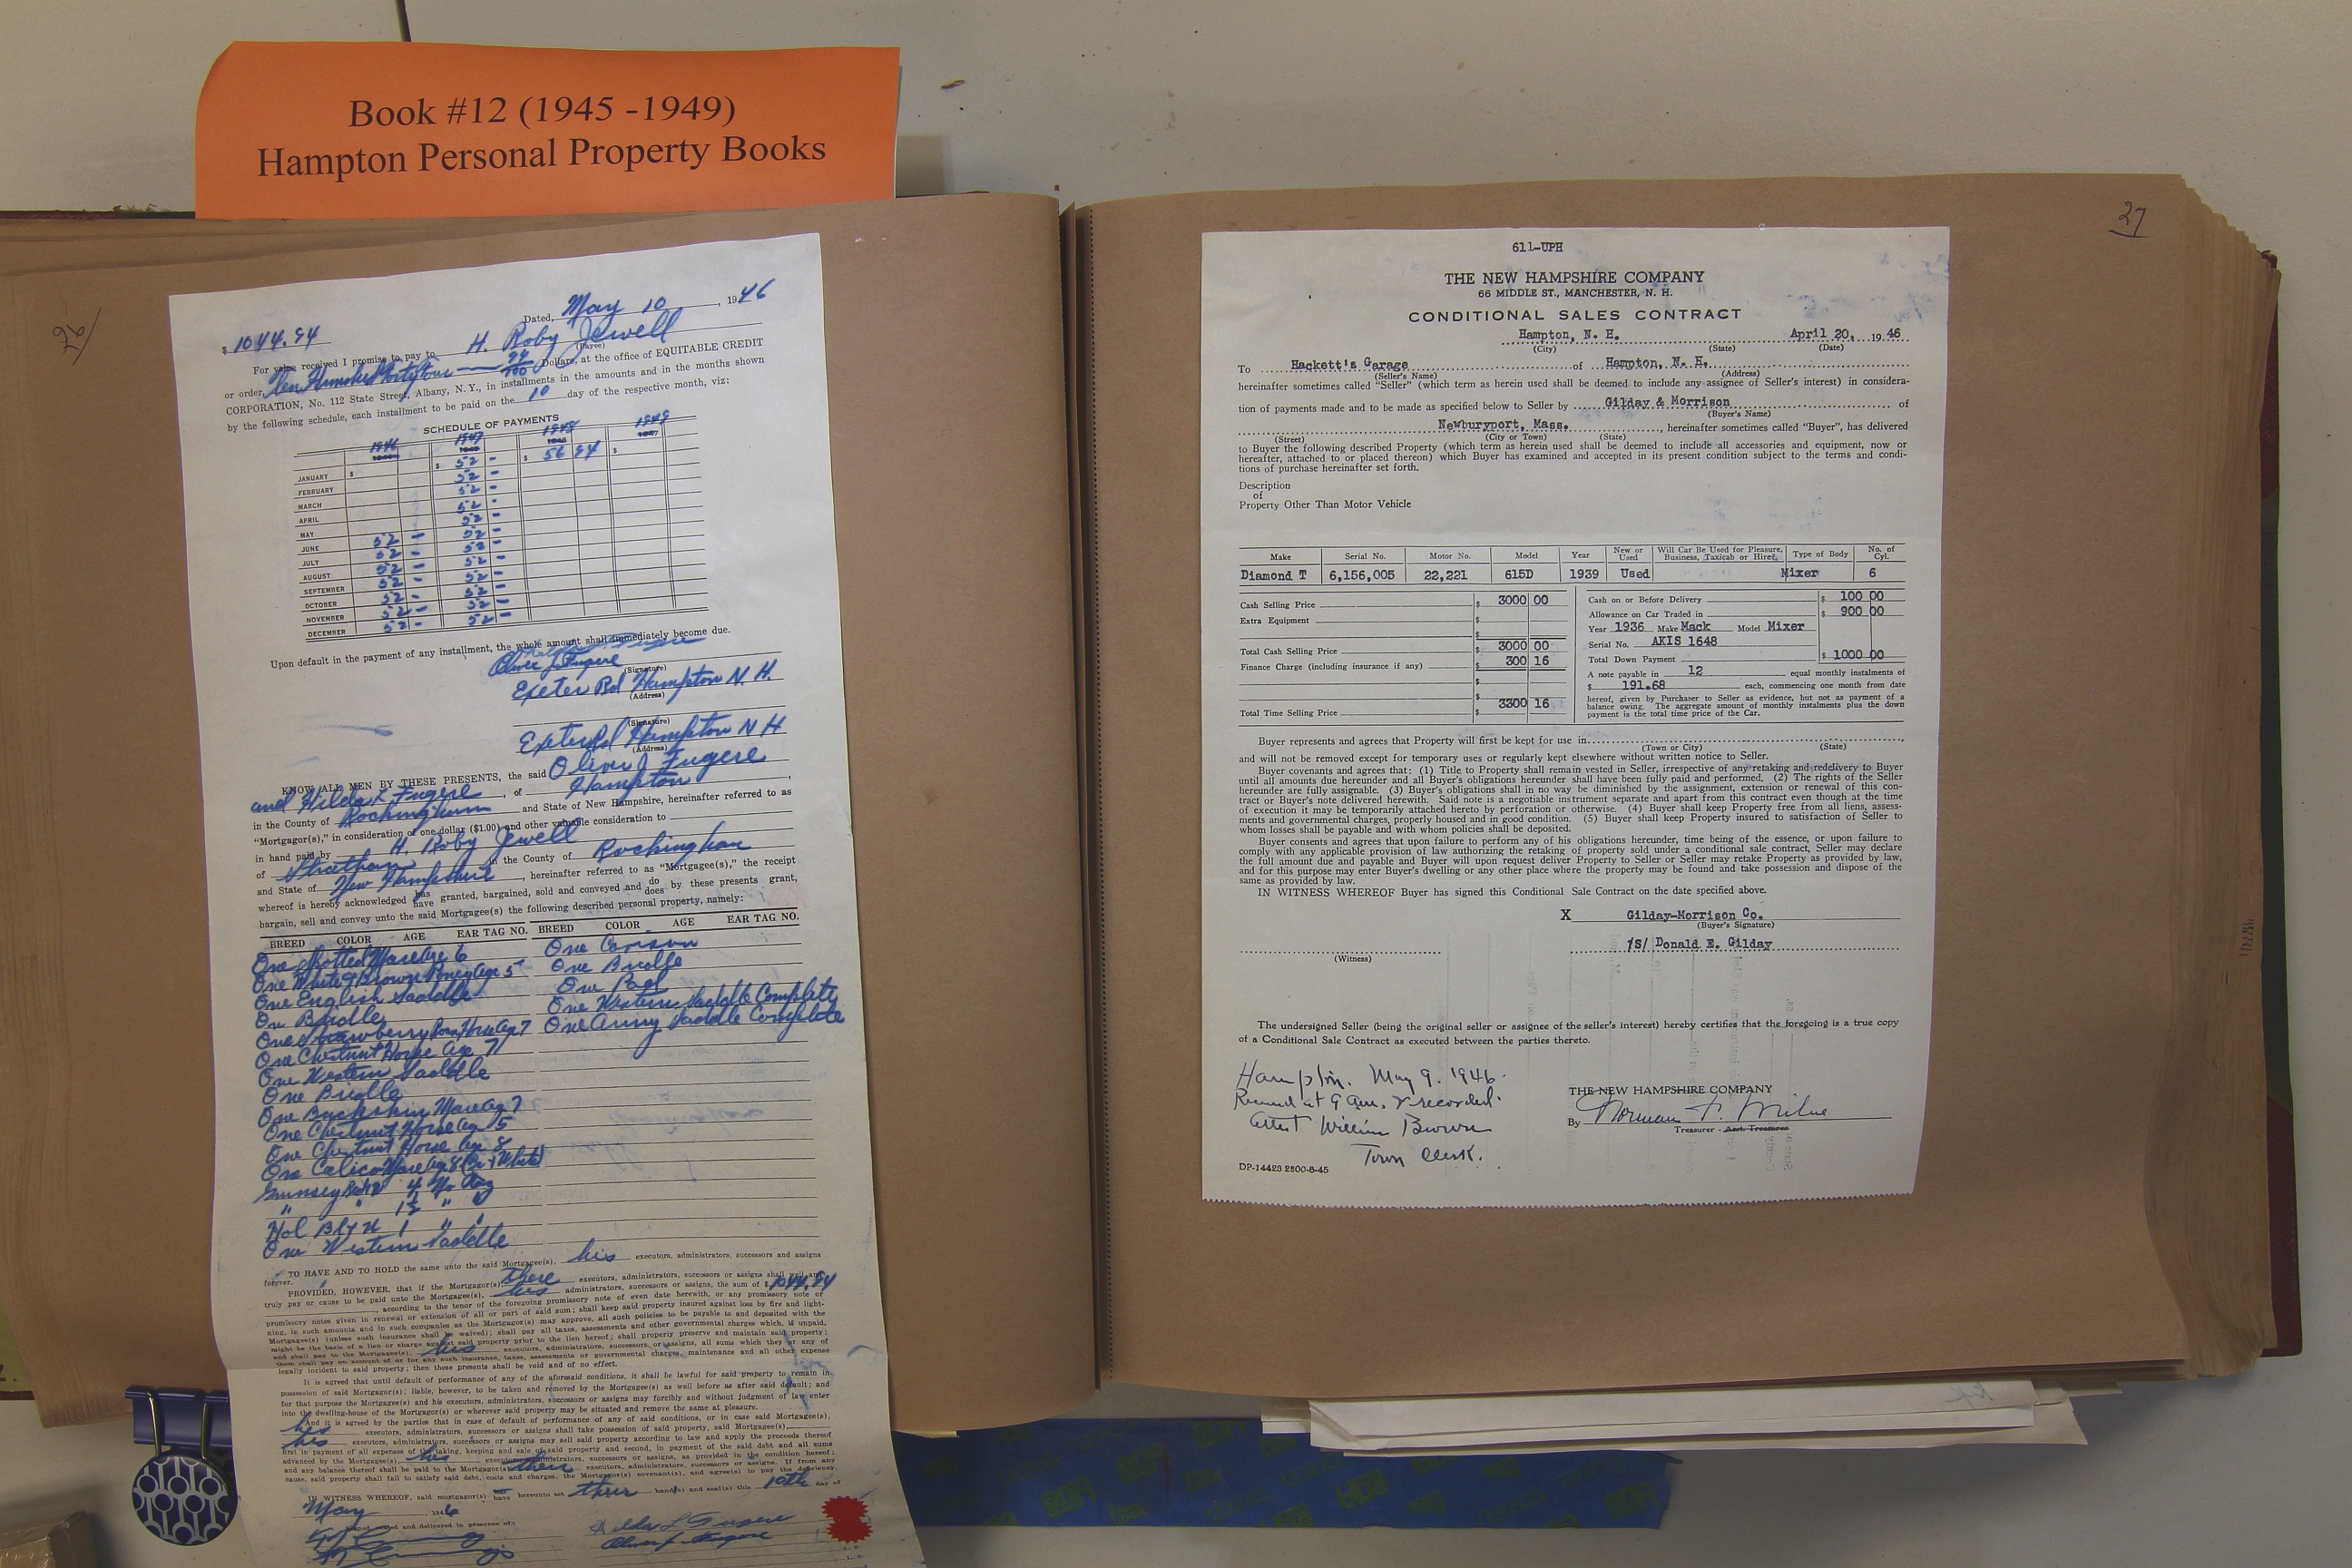 Book #12 (1945 -1949)
Hampton Personal Property Books
26
Dated, May 10, 1946
$ 1044.84
For value received I promise to pay to H. Roby Jewell
(Payee)
or order, Ten Hundred Forty four 84/100 Dollars, at the office of EQUITABLE CREDIT
CORPORATION, No. 112 State Street, Albany, N. Y., in installments in the amounts and in the months shown
by the following schedule, each installment to be paid on the 10 day of the respective month, viz:
SCHEDULE OF PAYMENTS
1946 1947 1948 1949
JANUARY $ $ 52 - $ 56 84 $
FEBRUARY 52 -
MARCH 52 -
APRIL 52 -
MAY 52 -
JUNE 52 - 52 -
JULY 52 - 52 -
AUGUST 52 - 52 -
SEPTEMBER 52 - 52 -
OCTOBER 52 - 52 -
NOVEMBER 52 - 52 -
DECEMBER 52 - 52 -
Upon default in the payment of any installment, the whole amount shall immediately become due.
Oliver J Fugere
(Signature)
Exeter Rd Hampton N. H.
(Address)
(Signature)
Exeter Rd Hampton N H
(Address)
KNOW ALL MEN BY THESE PRESENTS, the said Oliver J Fugere
and Hilda L Fugere, of Hampton,
in the County of Rockingham and State of New Hampshire, hereinafter referred to as
"Mortgagor(s)," in consideration of one dollar ($1.00) and other valuable consideration to
in hand paid by H. Roby Jewell
of Stratham in the County of Rockingham
and State of New Hampshire, hereinafter referred to as "Mortgagee(s)," the receipt
whereof is hereby acknowledged has have granted, bargained, sold and conveyed and do does by these presents grant,
bargain, sell and convey unto the said Mortgagee(s) the following described personal property, namely:
BREED COLOR AGE EAR TAG NO. BREED COLOR AGE EAR TAG NO.
One Spotted Mare Age 6 One
One White & Brown Poney Age 5 One Bridle
One English Saddle One
On Bridle One Western Saddle Complete
One Strawberry Roan Horse Age 7 One Army Saddle Complete
One Chestnut Horse Age 7
One Western Saddle
One Bridle
One Buckskin Mare Age 7
One Chestnut Horse Age 5
One Chestnut Horse Age 8
One Calico Mare Age 8
Gurnsey 4 No Tag
" " 1½ " "
Hol 1 " "
One Western Saddle
TO HAVE AND TO HOLD the same unto the said Mortgagee(s), his executors, administrators, successors and assigns
forever.
PROVIDED, HOWEVER, that if the Mortgagor(s) there executors, administrators, successors or assigns shall well and
truly pay or cause to be paid unto the Mortgagee(s), his administrators, successors or assigns, the sum of $ 1044.84
, according to the tenor of the foregoing promissory note of even date herewith, or any promissory note or
promissory notes given in renewal or extension of all or part of said sum; shall keep said property insured against loss by fire and light-
ning, in such amounts and in such companies as the Mortgagor(s) may approve, all such policies to be payable to and deposited with the
Mortgagee(s) (unless such insurance shall be waived); shall pay all taxes, assessments and other governmental charges which, if unpaid,
might be the basis of a lien or charge against said property prior to the lien hereof; shall properly preserve and maintain said property;
and shall pay to the Mortgagee(s), his executors, administrators, successors or assigns, all sums which they or any of
them shall pay on account of or for any such insurance, taxes, assessments or governmental charges, maintenance and all other expense
legally incident to said property; then these presents shall be void and of no effect.
It is agreed that until default of performance of any of the aforesaid conditions, it shall be lawful for said property to remain in
possession of said Mortgagor(s); liable, however, to be taken and removed by the Mortgagee(s) as well before as after said default; and
for that purpose the Mortgagee(s) and his executors, administrators, successors or assigns may forcibly and without judgment of law enter
into the dwelling-house of the Mortgagor(s) or wherever said property may be situated and remove the same at pleasure.
And it is agreed by the parties that in case of default of performance of any of said conditions, or in case said Mortgagee(s),
his executors, administrators, successors or assigns shall take possession of said property, said Mortgagee(s),
his executors, administrators, successors or assigns may sell said property according to law and apply the proceeds thereof
first in payment of all expenses of the taking, keeping and sale of said property and second, in payment of the said debt and all sums
advanced by the Mortgagee(s), his executors, administrators, successors or assigns, as provided in the condition hereof;
and any balance thereof shall be paid to the Mortgagor(s) their executors, administrators, successors or assigns. If from any
cause, said property shall fail to satisfy said debt, costs and charges, the Mortgagor(s) covenant(s), and agree(s) to pay the deficiency.
IN WITNESS WHEREOF, said mortgagor(s) have hereunto set their hand(s) and seal(s) this 10th day of
May 1946
Signed, sealed and delivered in presence of:
Hilda L Fugere
Oliver J. Fugere
L. S.
L. S.
27
611-UPH
THE NEW HAMPSHIRE COMPANY
66 MIDDLE ST., MANCHESTER, N. H.
CONDITIONAL SALES CONTRACT
Hampton, N. H. April 20, 19 46
(City) (State) (Date)
To Hackett's Garage of Hampton, N. H.
(Seller's Name) (Address)
hereinafter sometimes called "Seller" (which term as herein used shall be deemed to include any assignee of Seller's interest) in considera-
tion of payments made and to be made as specified below to Seller by Gilday & Morrison of
(Buyer's Name)
Newburyport, Mass., hereinafter sometimes called "Buyer", has delivered
(Street) (City or Town) (State)
to Buyer the following described Property (which term as herein used shall be deemed to include all accessories and equipment, now or
hereafter, attached to or placed thereon) which Buyer has examined and accepted in its present condition subject to the terms and condi-
tions of purchase hereinafter set forth.
Description
of
Property Other Than Motor Vehicle
Make Serial No. Motor No. Model Year New or Used Will Car Be Used for Pleasure, Business, Taxicab or Hire? Type of Body No. of Cyl.
Diamond T 6,156,005 22,221 615D 1939 Used Mixer 6
Cash Selling Price $ 3000 00
Extra Equipment $
$
Total Cash Selling Price $ 3000 00
Finance Charge (including insurance if any) $ 300 16
$
$
Total Time Selling Price $ 3300 16
Cash on or Before Delivery $ 100 00
Allowance on Car Traded in $ 900 00
Year 1936 Make Mack Model Mixer
Serial No. AKIS 1648
Total Down Payment $ 1000 00
A note payable in 12 equal monthly instalments of
$ 191.68 each, commencing one month from date
hereof, given by Purchaser to Seller as evidence, but not as payment of a
balance owing. The aggregate amount of monthly instalments plus the down
payment is the total time price of the Car.
Buyer represents and agrees that Property will first be kept for use in
(Town or City) (State)
and will not be removed except for temporary uses or regularly kept elsewhere without written notice to Seller.
Buyer covenants and agrees that: (1) Title to Property shall remain vested in Seller, irrespective of any retaking and redelivery to Buyer
until all amounts due hereunder and all Buyer's obligations hereunder shall have been fully paid and performed. (2) The rights of the Seller
hereunder are fully assignable. (3) Buyer's obligations shall in no way be diminished by the assignment, extension or renewal of this con-
tract or Buyer's note delivered herewith. Said note is a negotiable instrument separate and apart from this contract even though at the time
of execution it may be temporarily attached hereto by perforation or otherwise. (4) Buyer shall keep Property free from all liens, assess-
ments and governmental charges, properly housed and in good condition. (5) Buyer shall keep Property insured to satisfaction of Seller to
whom losses shall be payable and with whom policies shall be deposited.
Buyer consents and agrees that upon failure to perform any of his obligations hereunder, time being of the essence, or upon failure to
comply with any applicable provision of law authorizing the retaking of property sold under a conditional sale contract, Seller may declare
the full amount due and payable and Buyer will upon request deliver Property to Seller or Seller may retake Property as provided by law,
and for this purpose may enter Buyer's dwelling or any other place where the property may be found and take possession and dispose of the
same as provided by law.
IN WITNESS WHEREOF Buyer has signed this Conditional Sale Contract on the date specified above.
X Gilday-Morrison Co.
(Buyer's Signature)
/S/ Donald E. Gilday
(Witness)
The undersigned Seller (being the original seller or assignee of the seller's interest) hereby certifies that the foregoing is a true copy
of a Conditional Sale Contract as executed between the parties thereto.
Hampton. May 9. 1946.
Received at 9 am. & recorded.
Attest William Brown
Town Clerk.
THE NEW HAMPSHIRE COMPANY
By Norman F. Milne
Treasurer - Asst. Treasurer
DP-14423 2500-8-45